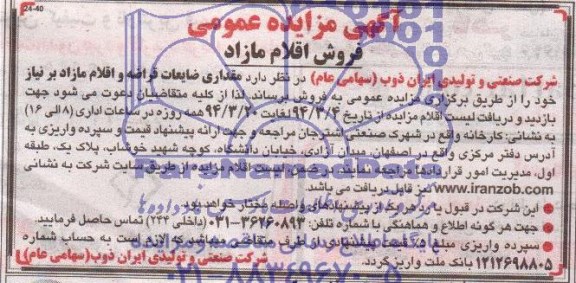 24-40
آگهی مزایده عمومی
فروش اقلام مازاد
شرکت صنعتی و تولیدی ایران ذوب (سهامی عام) در نظر دارد مقداری ضایعات قراضه و اقلام مازاد بر نیاز
خود را از طریق برگزاری مزایده عمومی به فروش برساند، لذا از کلیه متقاضیان دعوت می شود جهت
بازدید و دریافت لیست اقلام مزایده از تاریخ ۹۴/۳/۴ لغایت ۹۴/۳/۲۰ همه روزه در ساعات اداری (۸ الی ۱۶)
به نشانی: کارخانه واقع در شهرک صنعتی اشترجان مراجعه و جهت ارائه پیشنهاد قیمت و سپرده واریزی به
آدرس دفتر مرکزی واقع در اصفهان، میدان آزادی، خیابان دانشگاه، کوچه شهید خوشاب، پلاک یک، طبقه
اول، مدیریت امور قراردادها مراجعه نمایند. در ضمن لیست اقلام مزایده از طریق سایت شرکت به نشانی
www.iranzob.com نیز قابل دریافت می باشد.
● این شرکت در قبول یا رد هریک از پیشنهادهای واصله مختار خواهد بود.
● جهت هرگونه اطلاع و هماهنگی با شماره تلفن: ۳۶۷۶۰۸۹۳-۰۳۱ (داخلی ۲۴۴) تماس حاصل فرمایید.
● سپرده واریزی مبلغ قیمت پیشنهادی از طرف متقاضی میباشد که لازم است به حساب شماره
۱۲۱۲۶۹۸۸۰۵ بانک ملت واریز گردد.
شرکت صنعتی و تولیدی ایران ذوب (سهامی عام)
ParsNamadData
۰۲۱-۸۸۳۴۹۶۷۰-۵